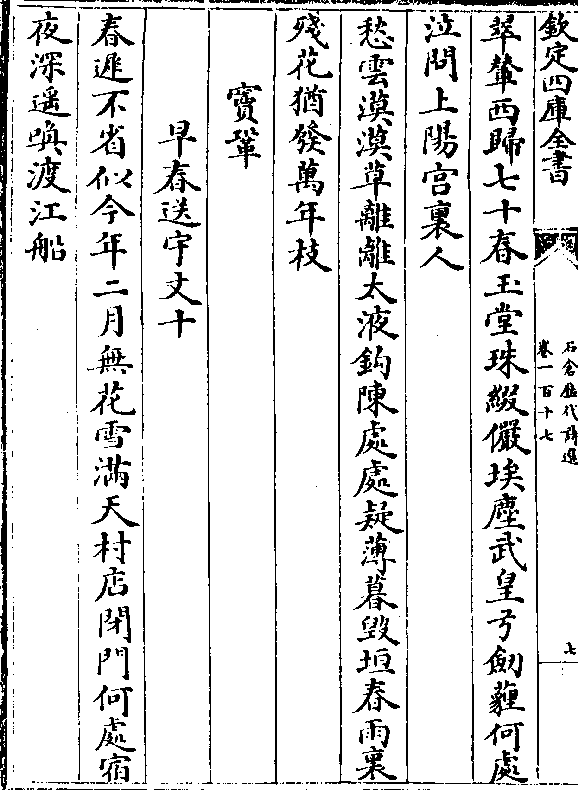 欽定四庫全書
石倉歴代詩選
卷一百十七
七
翠輦西歸七十春玉堂珠綴儼埃塵武皇弓劒薶何處
泣問上陽宫裏人
愁雲漠漠草離離太液鈎陳處處疑薄暮毁垣春雨裏
殘花猶發萬年枝
竇鞏
早春送宇文十
春遲不省似今年二月無花雪滿天村店閉門何處宿
夜深遥喚渡江船